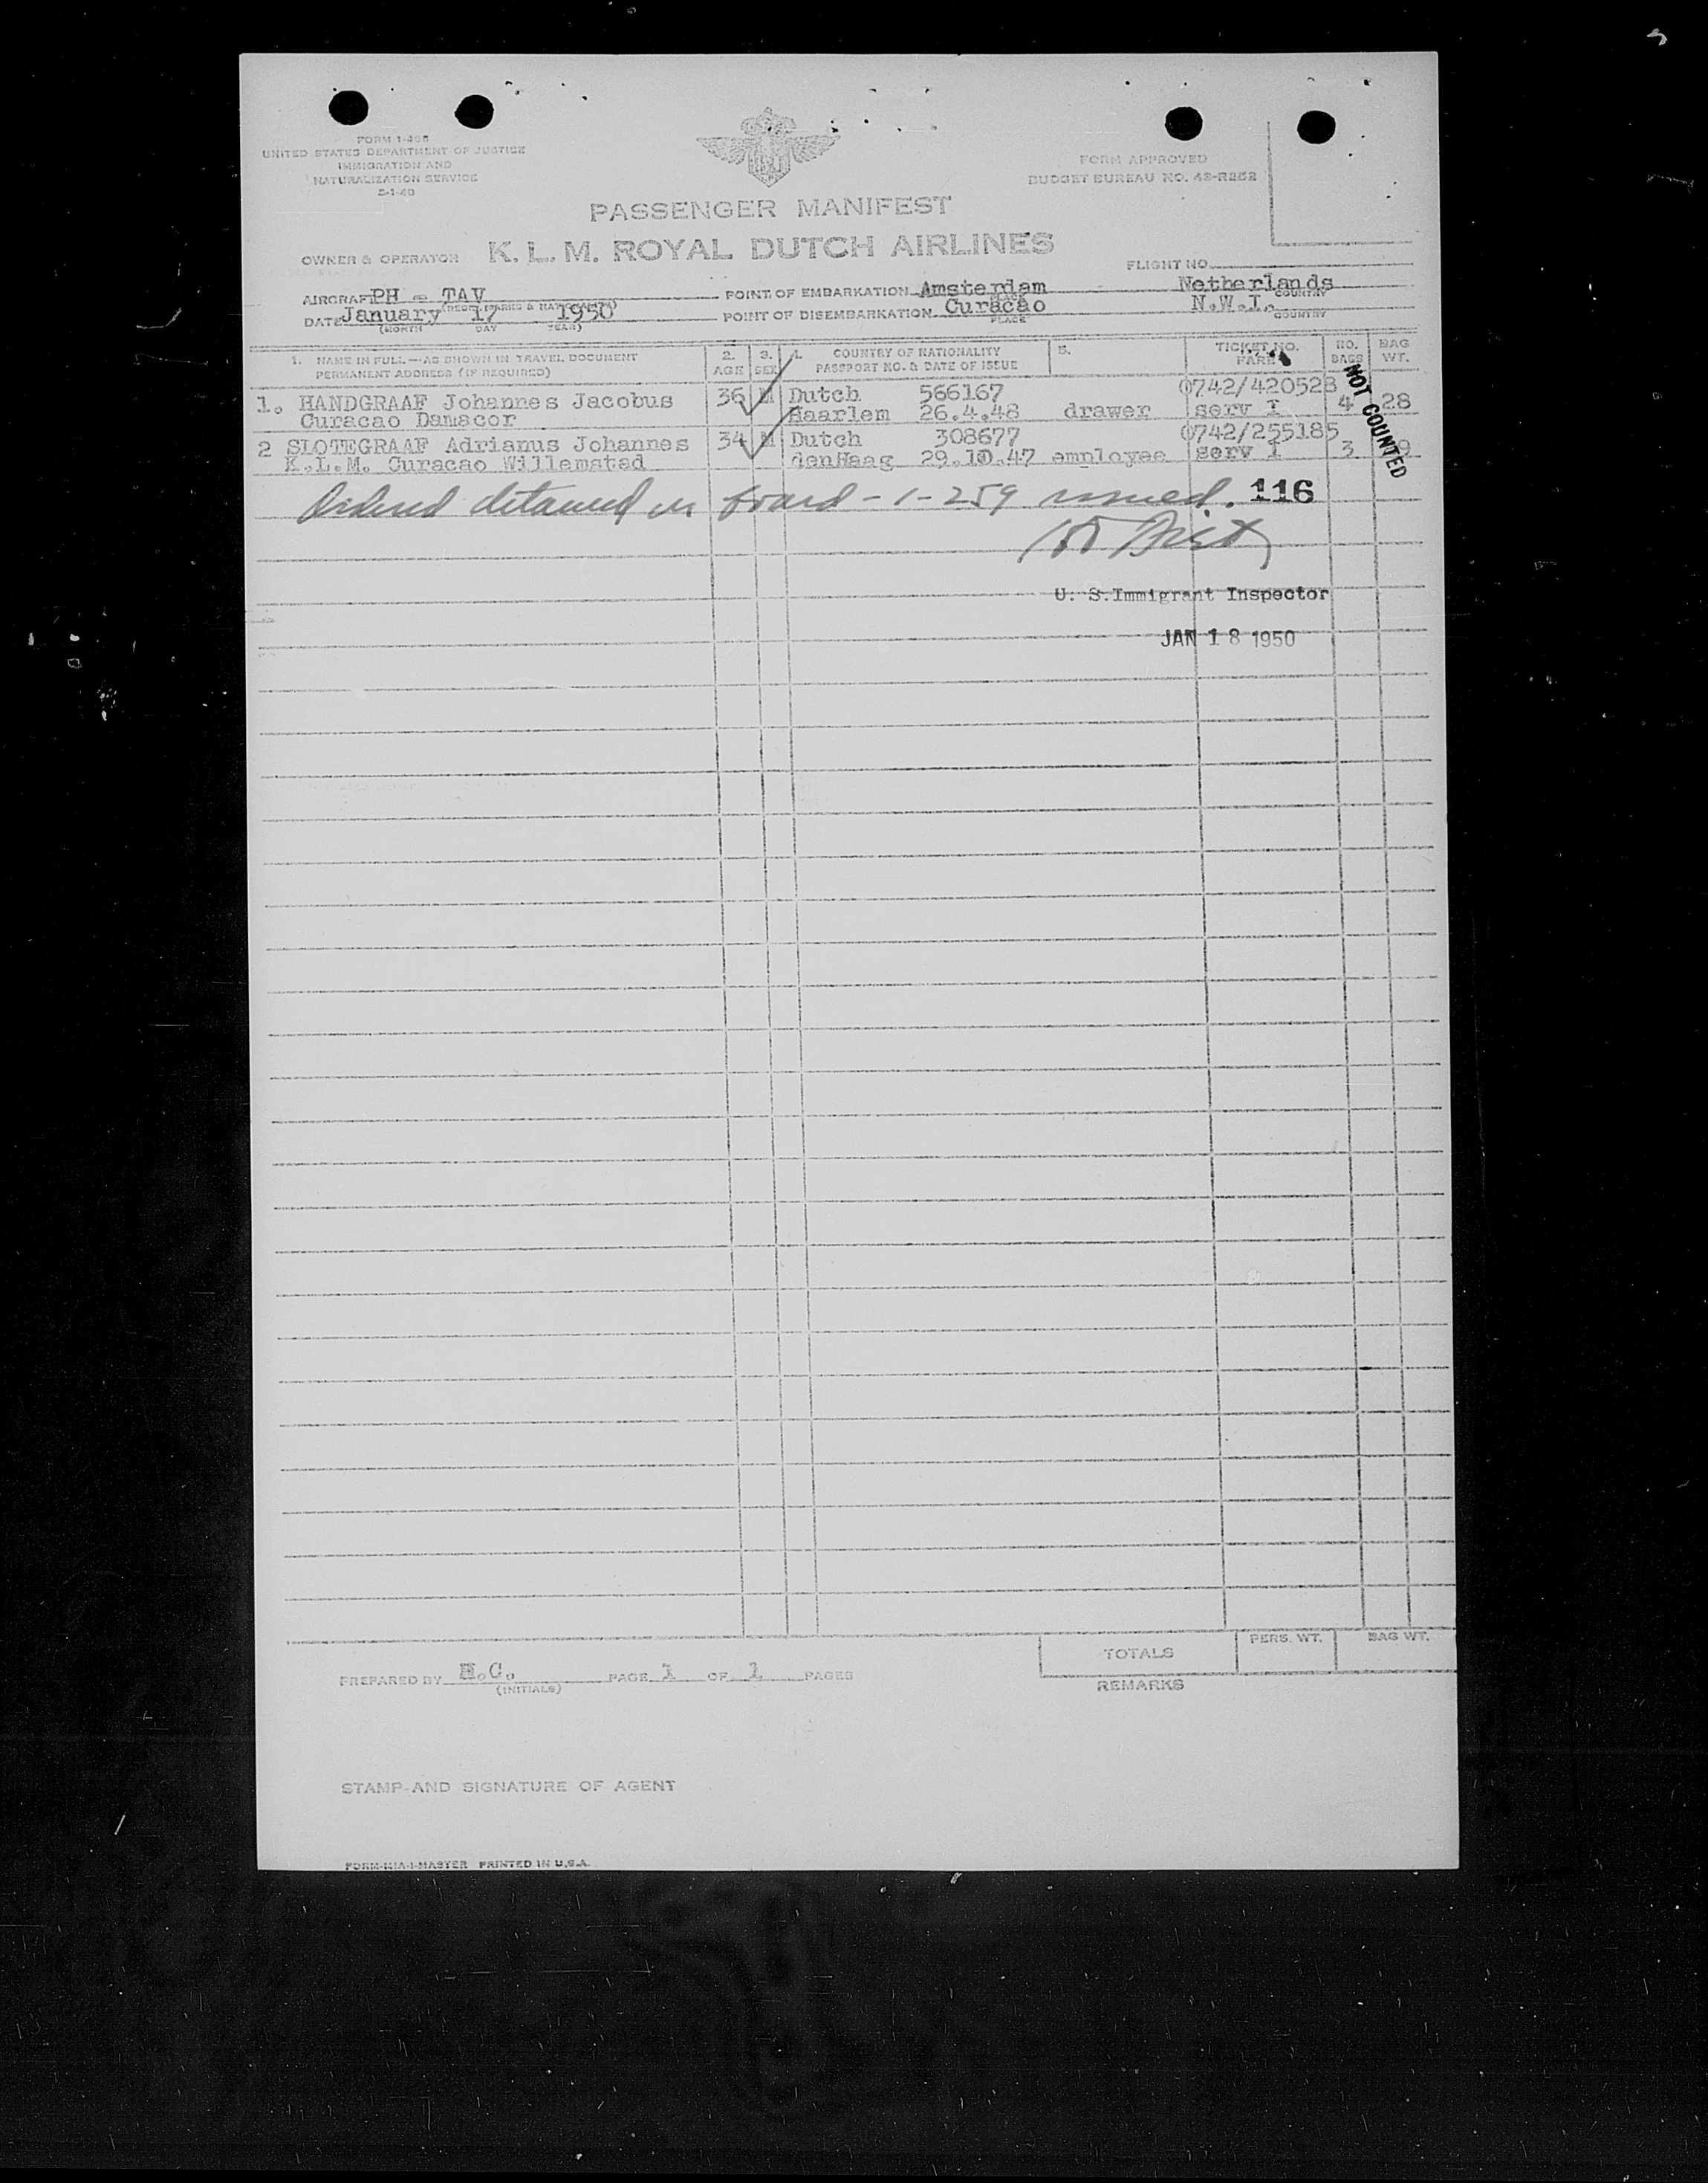 FORM I-466
UNITED STATES DEPARTMENT OF JUSTICE
IMMIGRATION AND
NATURALIZATION SERVICE
FORM APPROVED
BUDGET BUREAU NO. 43-R252
PASSENGER MANIFEST
OWNER & OPERATOR K. L. M. ROYAL DUTCH AIRLINES
FLIGHT NO.
AIRCRAFT PH - TAV POINT OF EMBARKATION Amsterdam Netherlands
PLACE COUNTRY
DATE January 17 1950 POINT OF DISEMBARKATION Curacao N.W.I.
(MONTH DAY YEAR) PLACE COUNTRY
1. NAME IN FULL—AS SHOWN IN TRAVEL DOCUMENT 2. 3. 4. COUNTRY OF NATIONALITY 5. TICKET NO. NO. BAG
PERMANENT ADDRESS (IF REQUIRED) AGE SEX PASSPORT NO. & DATE OF ISSUE FARE BAGS WT.
1. HANDGRAAF Johannes Jacobus 36 M Dutch 566167 0742/420528 4 28
Curacao Damacor Haarlem 26.4.48 drawer serv I
2 SLOTEGRAAF Adrianus Johannes 34 M Dutch 308677 0742/255185 3
K.L.M. Curacao Willemstad denHaag 29.10.47 employee serv I
NOT COUNTED
Ordered detained on board - 1-259 issued. 116
U. S. Immigrant Inspector
JAN 18 1950
TOTALS PERS. WT. BAG WT.
PREPARED BY H.C. PAGE 1 OF 1 PAGES
(INITIALS)
REMARKS
STAMP AND SIGNATURE OF AGENT
PRINTED IN U.S.A.